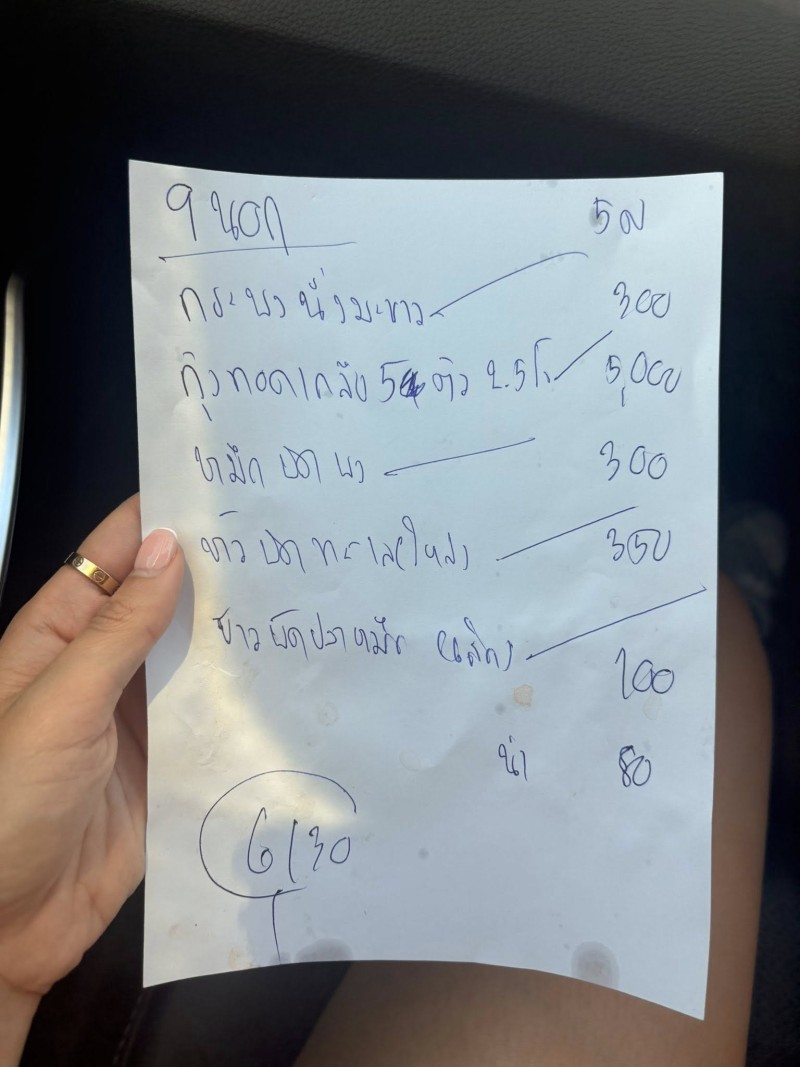 9 นอก 5 ท
กระพง นึ่งมะนาว 300
กุ้งทอดเกลือ 5 ตัว 2.5 โล 5,000
หมึก ผัด ผง 300
ข้าว ผัด ทะเล (ใหญ่) 350
ข้าว ผัดปลาหมึก (เล็ก) 100
น้ำ 80
6130